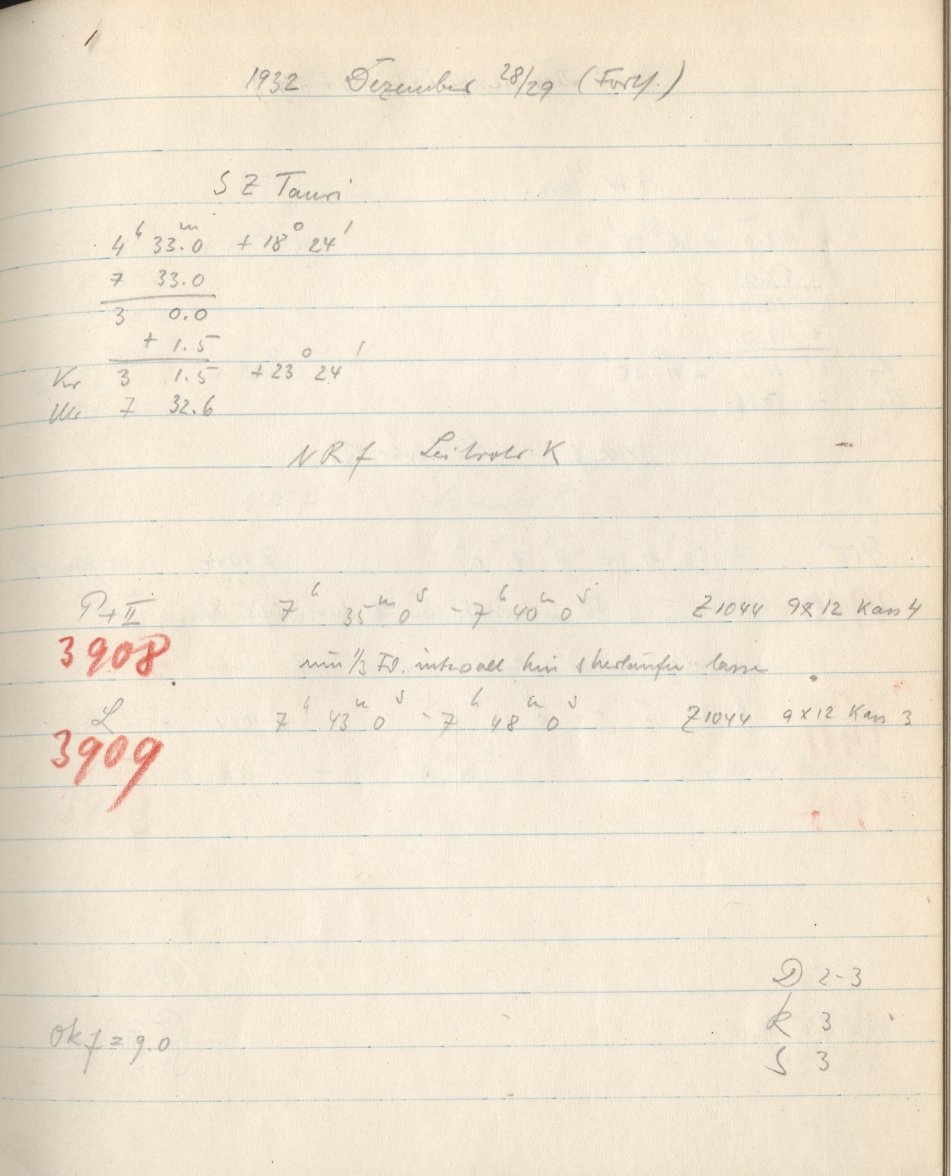 1932 Dezember 28/29 (Forts.)
S Z Tauri
4ʰ 33.0ᵐ + 18° 24'
7 33.0
3 0.0
+ 1.5
Kr 3 1.5 + 23° 24'
Ur 7 32.6
N R f Leitrohr K
P + II 7ʰ 35ᵐ 0ˢ - 7ʰ 40ᵐ 0ˢ Z1044 9x12 Kass 4
3908 1/3 intervall lassen
L 7ʰ 43ᵐ 0ˢ - 7ʰ 48ᵐ 0ˢ Z1044 9x12 Kass 3
3909
D 2-3
R 3
Ok f = 9.0
S 3